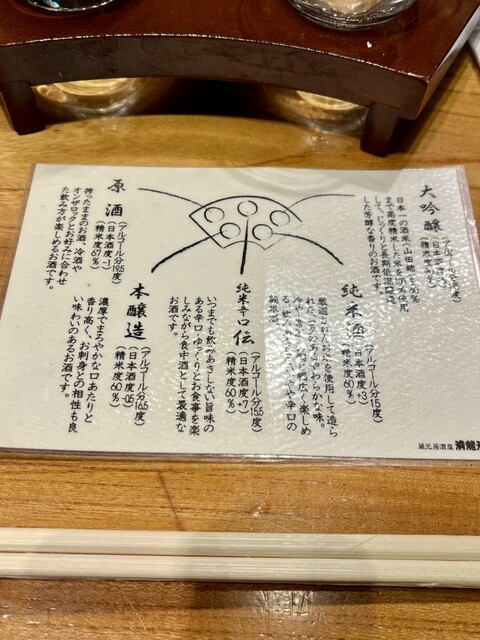 大吟醸
日本一の酒米「山田錦」を
まで高度精米した米を100%使用
して、じっくりと長期低温
した芳醇な香りのお酒です。
純米酒
(アルコール分15度)
(日本酒度+3)
(精米度60%)
厳選された
を使用して造ら
れた、
やわらかな味。
冷や
幅広く楽しめ
辛口の
純米酒
純米辛口 伝
(アルコール分15.5度)
(日本酒度+7)
(精米度60%)
いつまでも飲みあきしない旨味の
ある辛口。ゆっくりとお食事を楽
しみながら食中酒として最適な
お酒です。
本醸造
(アルコール分16.5度)
(日本酒度-0.5)
(精米度60%)
濃厚でまろやかな口あたりと
香り高く、お刺身との相性も良
い味わいのあるお酒です。
原酒
(アルコール分19.5度)
(日本酒度-1)
(精米度67%)
搾ったままのお酒、冷酒や
オンザロックとお好みに合わせ
た飲み方が楽しめるお酒です。
蔵元居酒屋 清龍